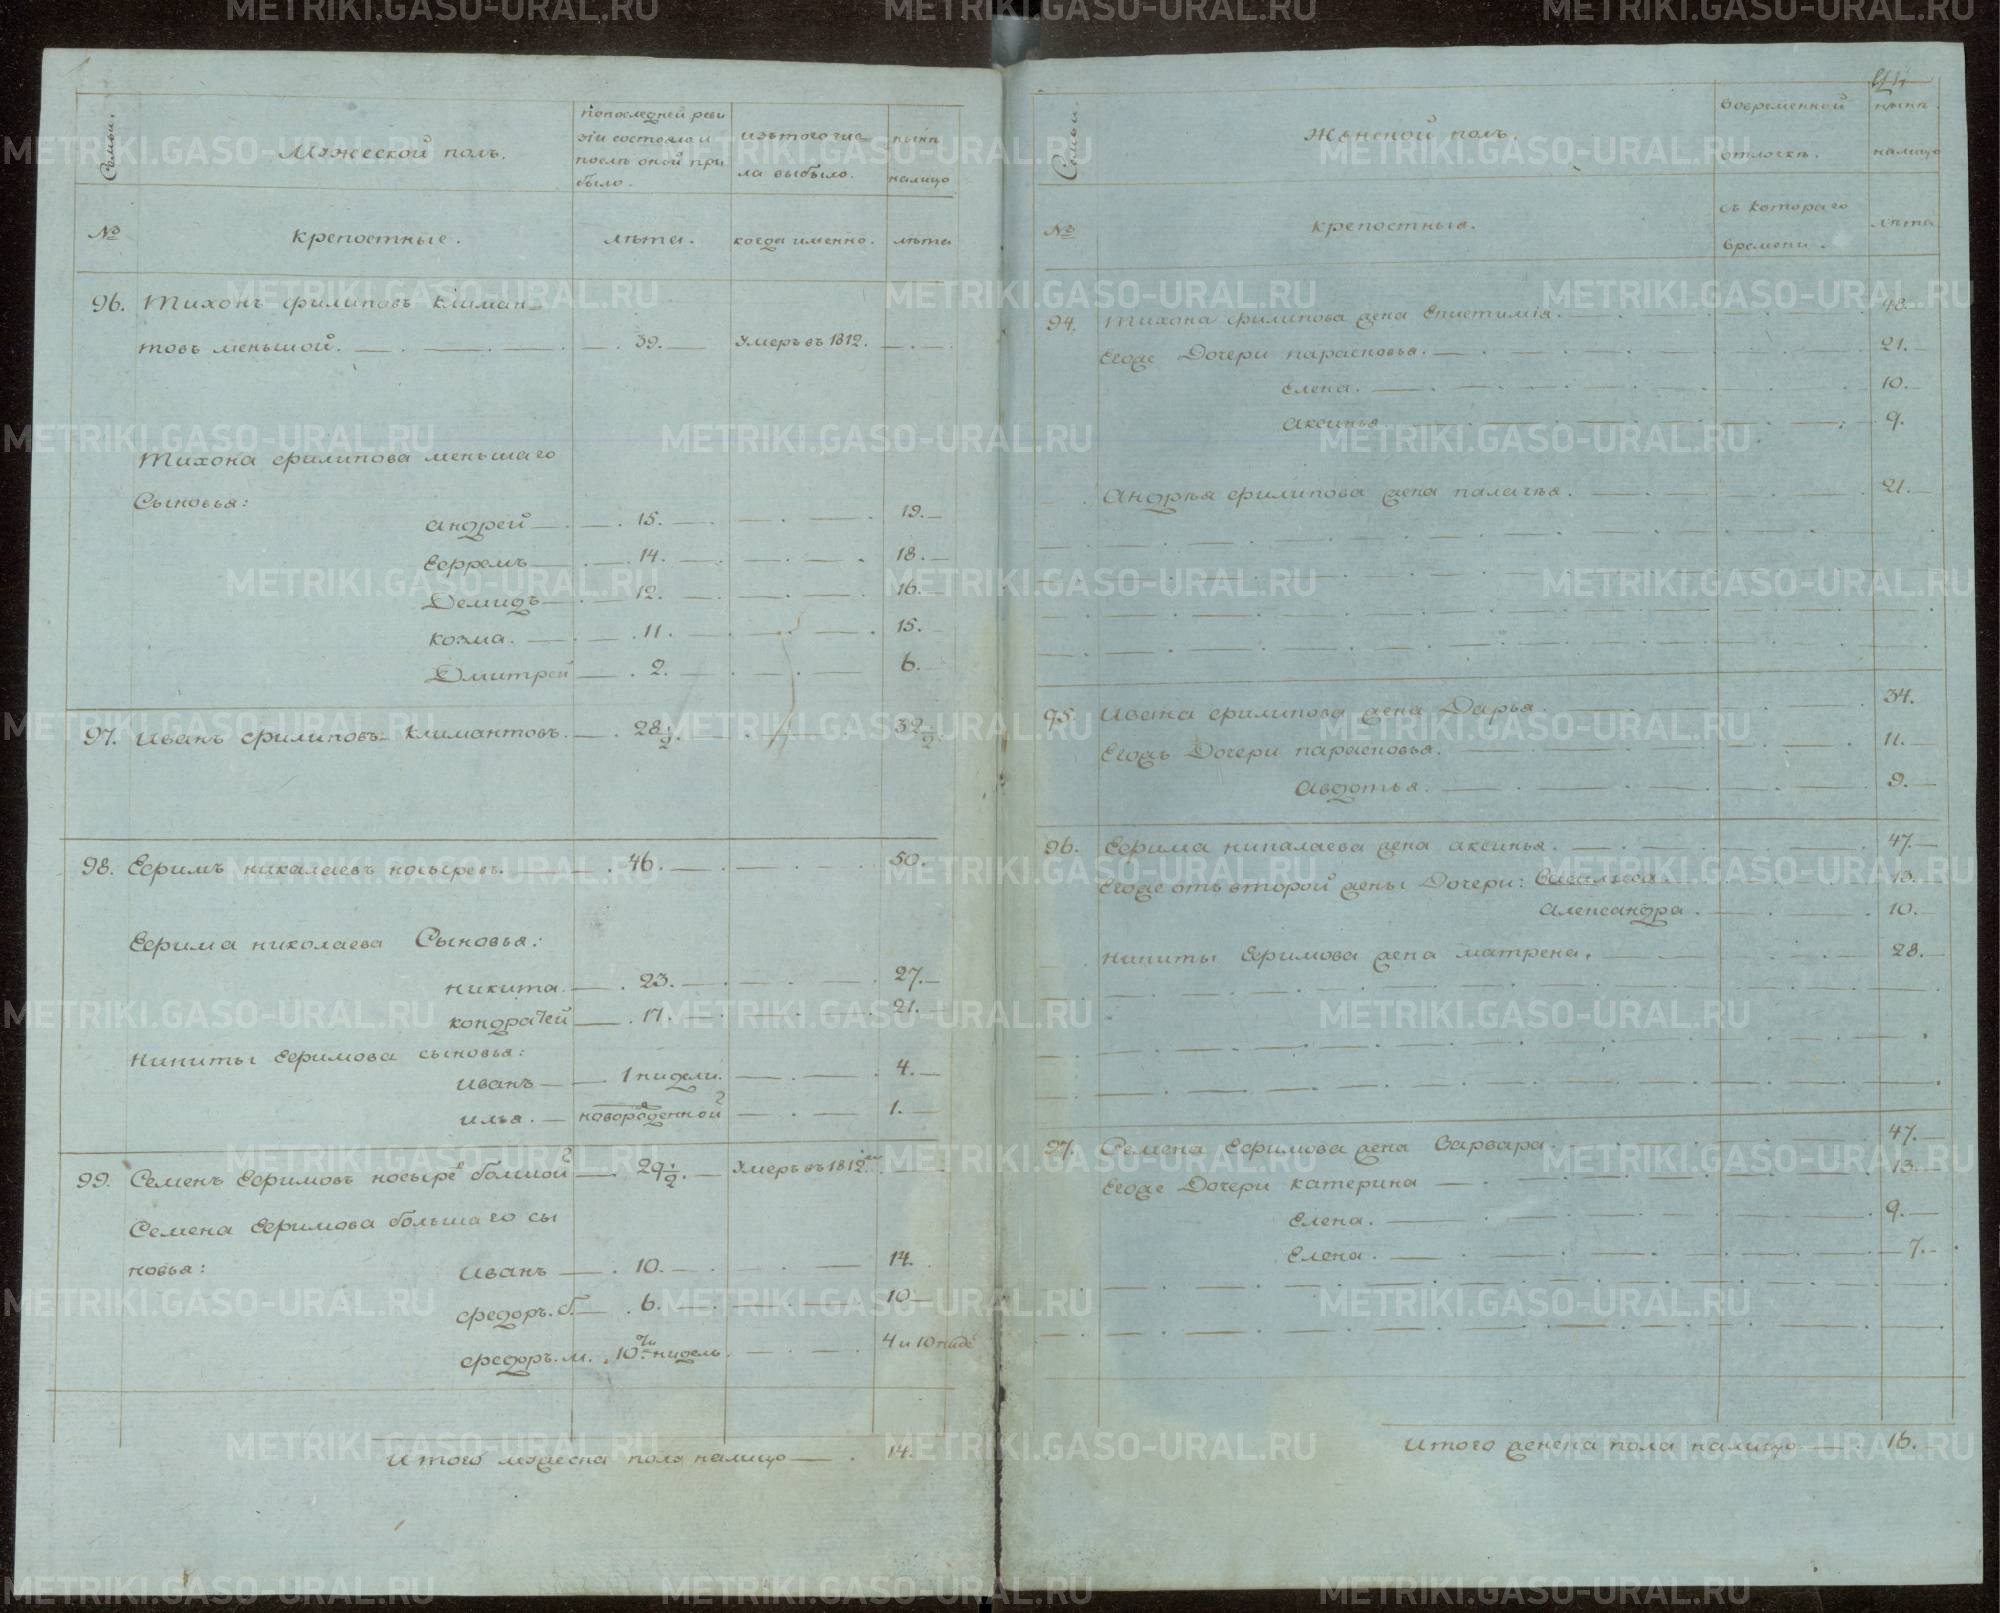 Семьи.
Мужеской полъ.
попоследней реви
зiи состояло и
послѣ оной при
было.
изътого чис-
ла выбыло.
нынѣ
налицо
№
крепостные.
лѣта.
когда именно.
лѣта
96. Тихонъ филиповъ климан-
товъ меньшой. 39. умеръ въ 1812.
Тихона филипова меньшаго
Сыновья:
андрей 15. 19.
Ефремъ 14. 18.
Демидъ 12. 16.
козма. 11. 15.
Дмитрей 2. 6.
97. Иванъ филиповъ климантовъ. 28 1/2. 32 1/2
98. Ефимъ никалаевъ носыревъ. 46. 50.
Ефима николаева Сыновья:
никита 23. 27.
кондратей 17. 21.
никиты Ефимова сыновья:
иванъ 1 нидели. 4.
илья. новорожденной 1.
99. Семенъ Ефимовъ носыревъ болшой 29 1/2. умеръ въ 1812мъ
Семена Ефимова большаго сы
новья: Иванъ 10. 14.
федоръ. б. 6. 10
федоръ. м. 10ти нидель. 4 и 10 ниде
Итого мужеска пола налицо 14.
Семьи.
Женской полъ.
вовременной
отлочкѣ.
нынѣ
налицо
№
крепостныя.
съ котораго
времени.
лѣта
94. Тихона филипова жена Епистимiя. 48.
Егоже Дочери парасковья. 21.
Елена. 10.
аксинья 9.
Андрѣя филипова жена палагѣя. 21.
95. Ивана филипова жена Дарья. 34.
Егожъ Дочери парасковья. 11.
Авдотья. 9.
96. Ефима никалаева жена аксинья. 47.
Егоже отъ второй жены Дочери: Василиса 13.
Александра. 10.
никиты Ефимова жена матрена. 28.
97. Семена Ефимова жена Варвара. 47.
Егоже Дочери катерина 13.
Елена. 9.
Елена. 7.
Итого женска пола налицо 16.
METRIKI.GASO-URAL.RU